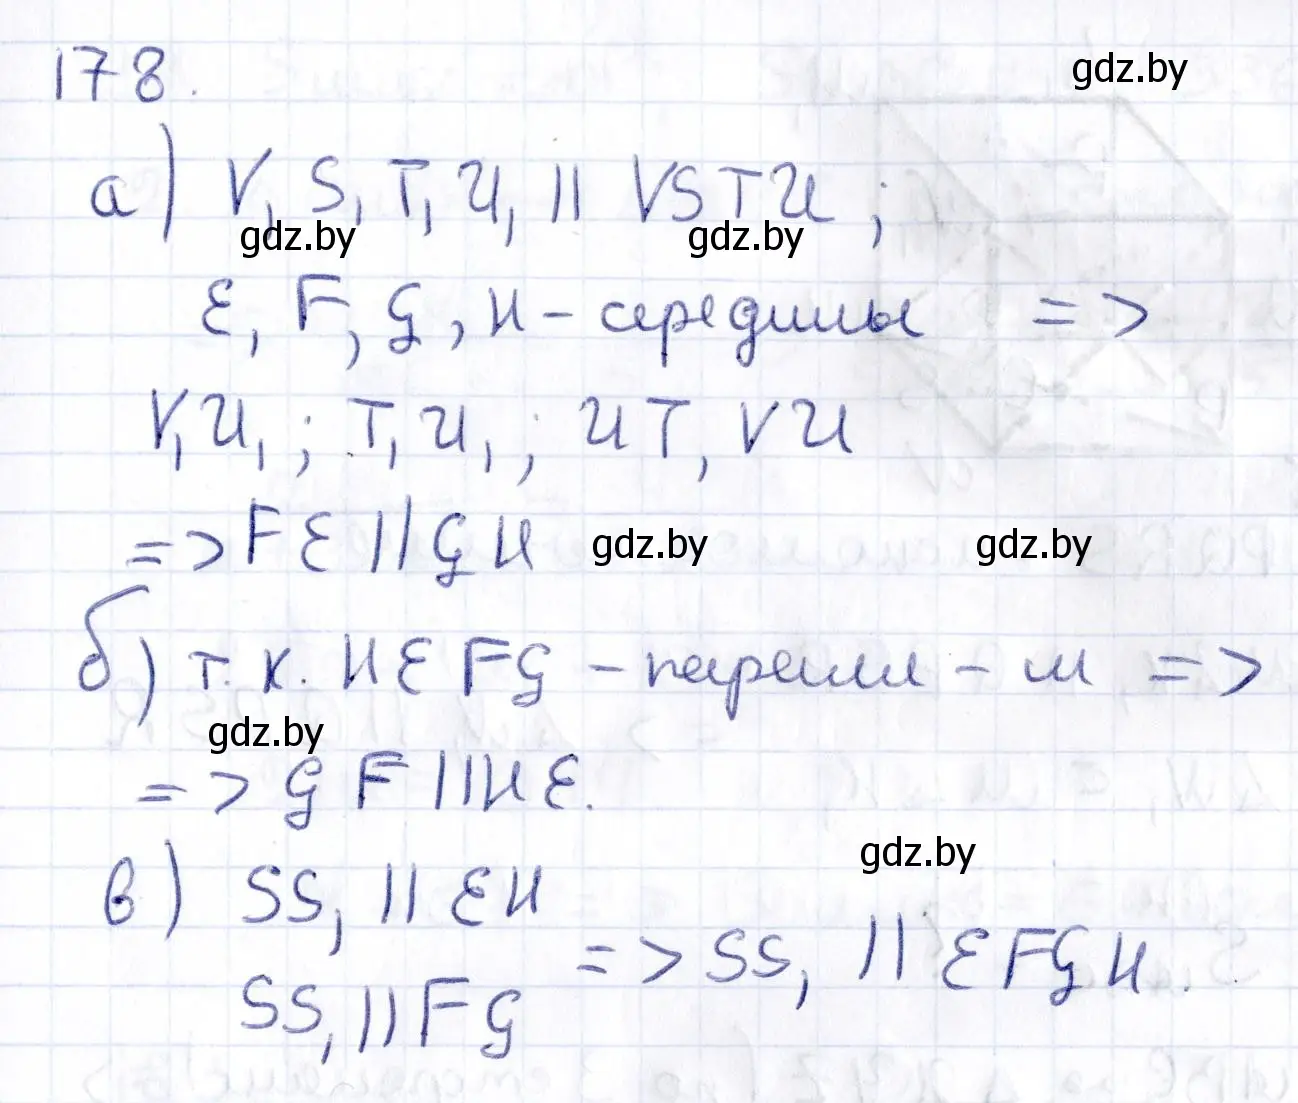 178.
gdz.by
а) V₁S₁T₁U₁ || VSTU ;
gdz.by gdz.by
E, F, G, H – середины =>
V₁U₁ ; T₁U₁ ; UT, VU
=> FE || GH
gdz.by gdz.by
б) т.к. HEFG – паралл – м =>
gdz.by
=> GF || HE.
gdz.by
в) SS₁ || EH
=> SS₁ || EFGH.
SS₁ || FG